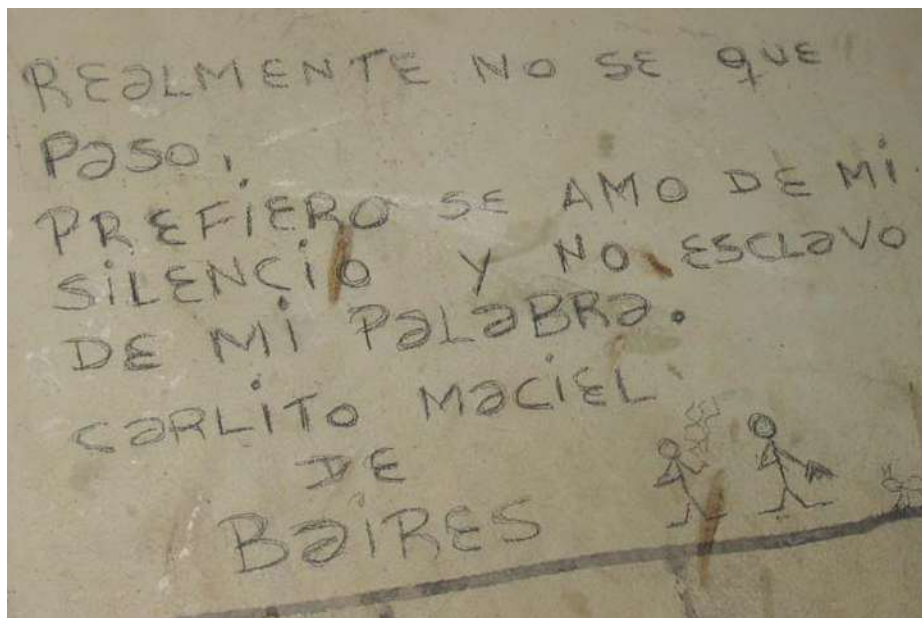 REALMENTE NO SE QUE
PASO,
PREFIERO SE AMO DE MI
SILENCIO Y NO ESCLAVO
DE MI PALABRA.
CARLITO MACIEL
DE
BAIRES